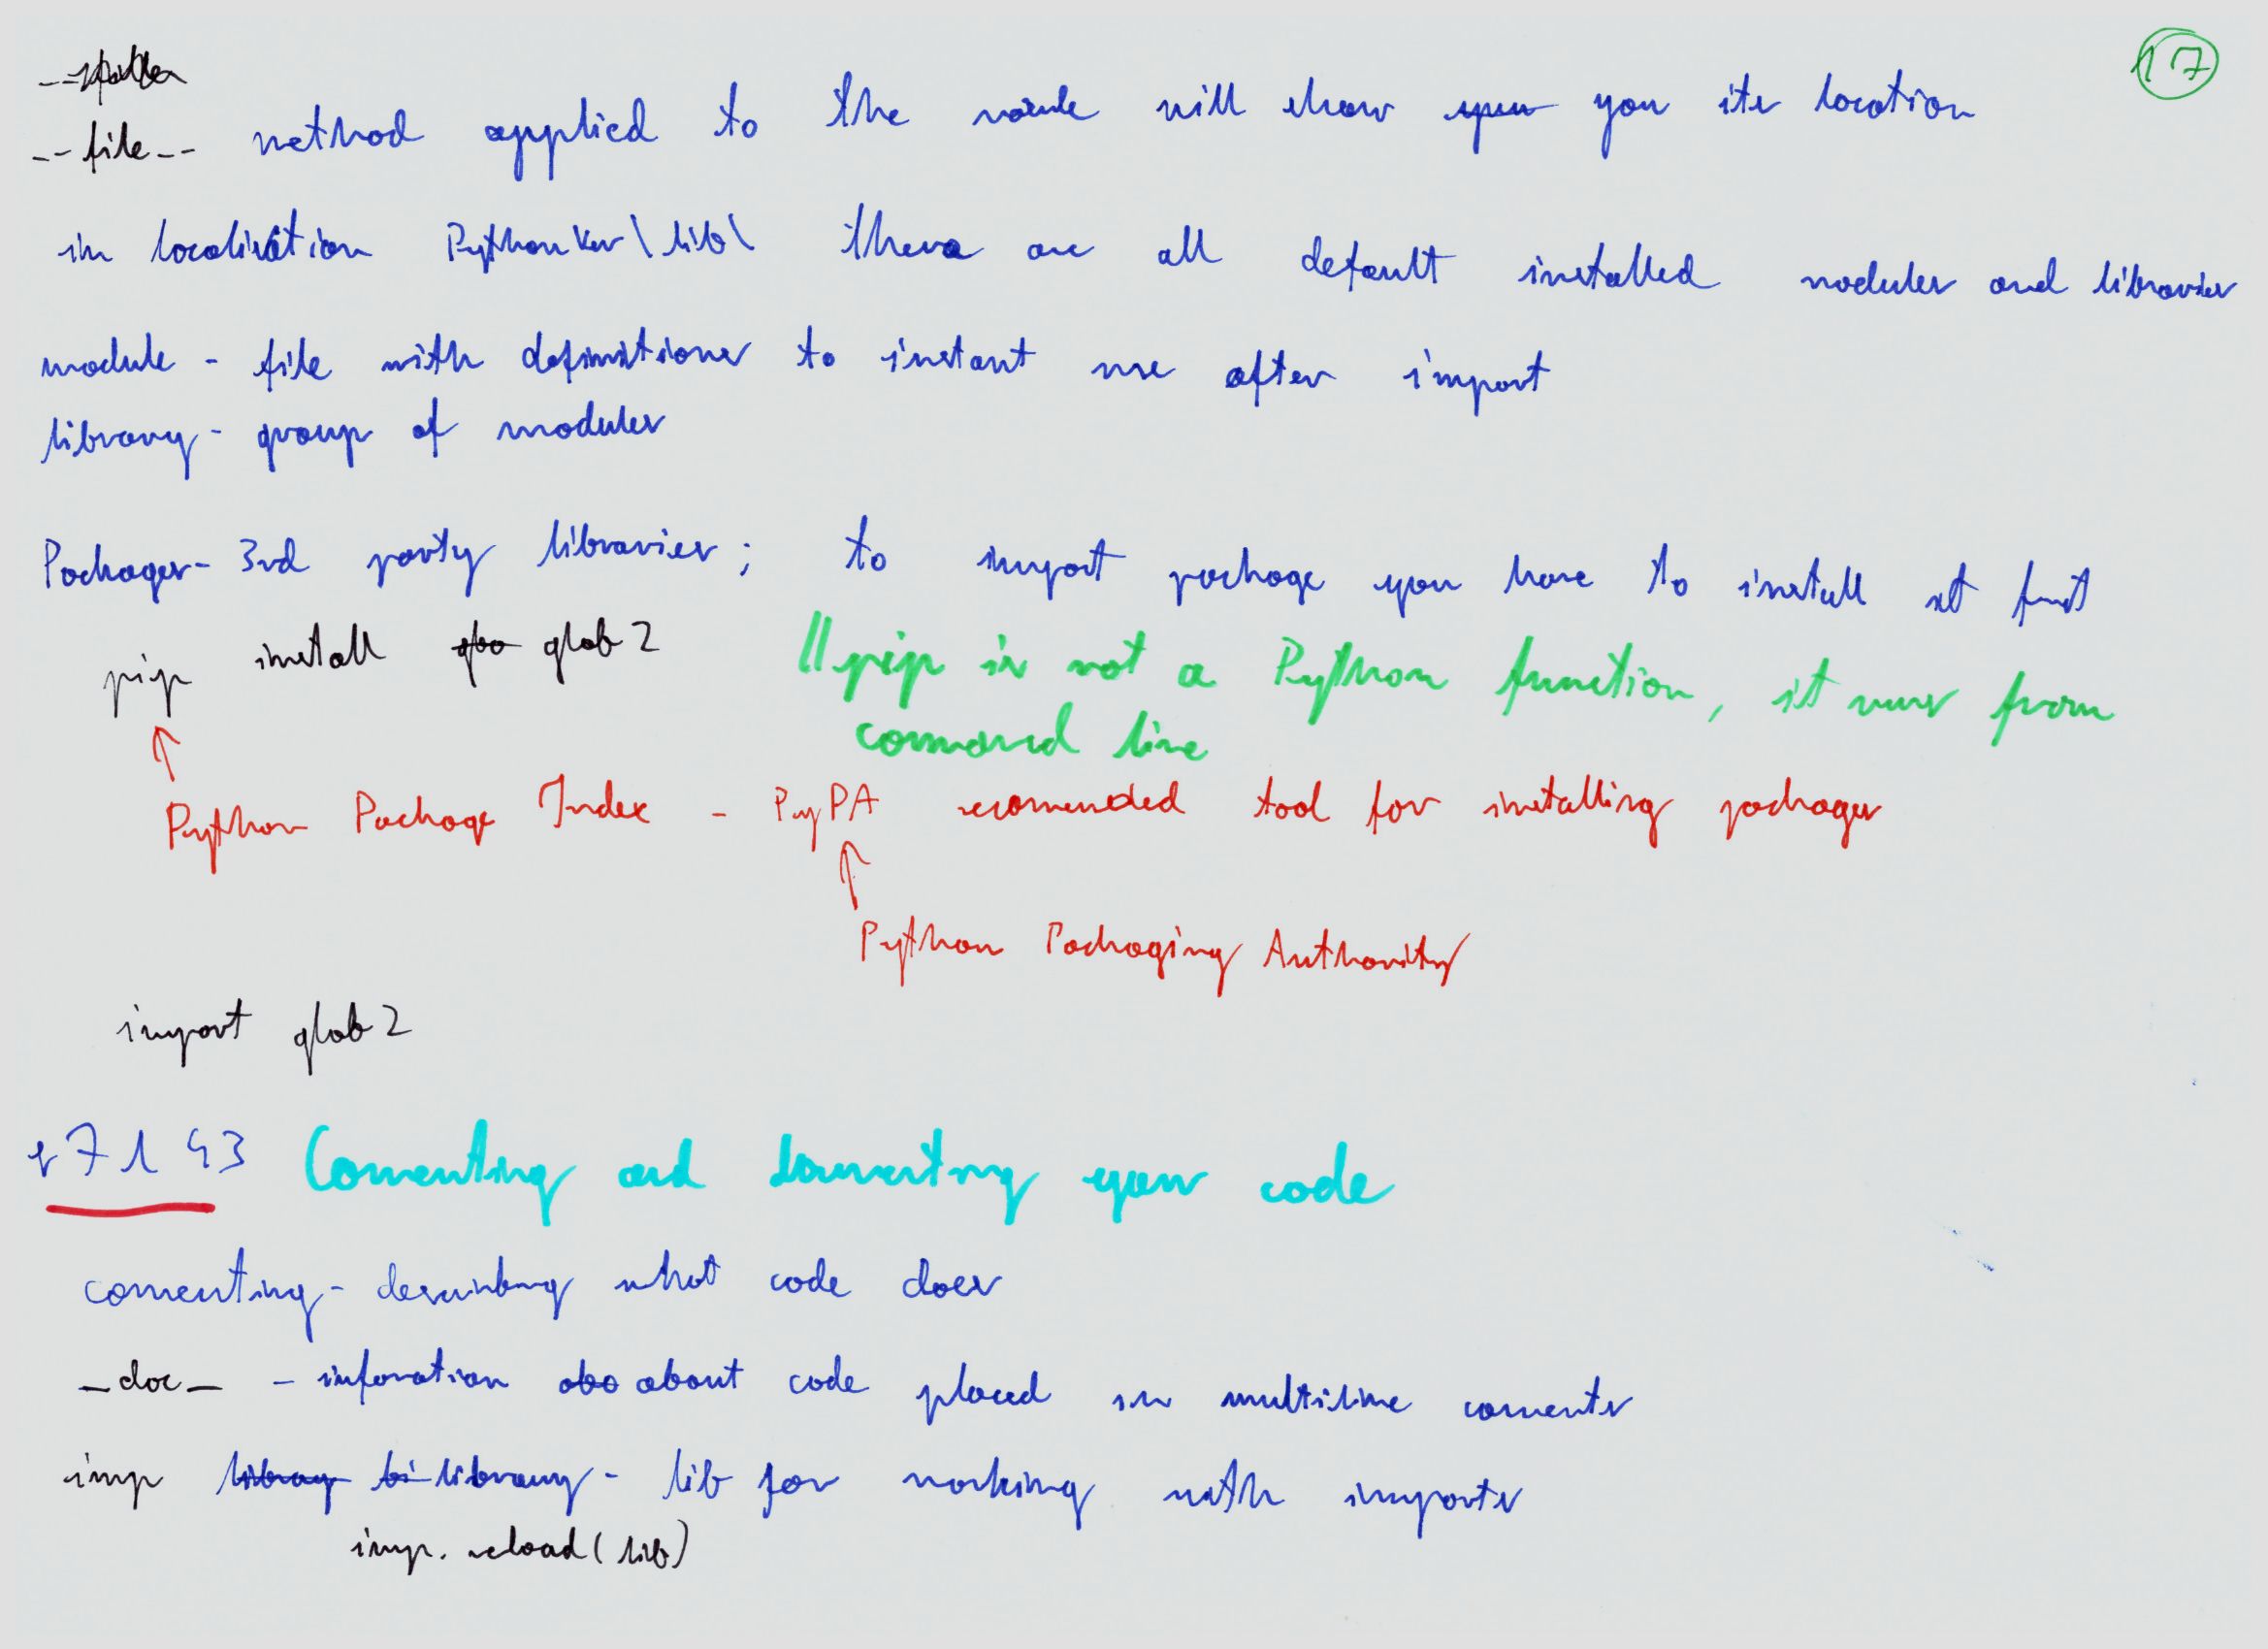 17
--file-- method applied to the module will show you its location
in localisation Python\lib\ there are all default installed modules and libraries
module - file with definitions to instant use after import
library - group of modules
Packages - 3rd party libraries; to import package you have to install it first
pip install glob2 // pip is not a Python function, it runs from
command line
Python Package Index - PyPA recomended tool for installing packages
Python Packaging Authority
import glob2
7 1 43 Comenting and your code
comenting - describing what code does
_doc_ - information about code placed in multiline coments
imp library - lib for working with imports
imp.reload(lib)